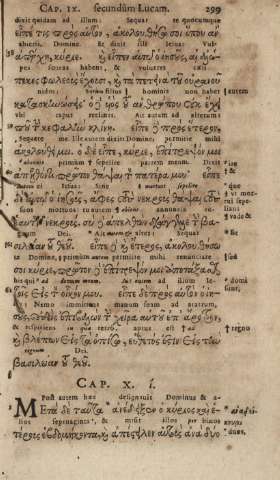 CAP. IX. secundùm Lucam. 299
dixit quidam ad illum: Sequar te quocumque
εἶπέ τις πρὸς αὐτὸν, ἀκολουθήσω σοι ὅπου ἂν
abieris, Domine. & dixit ille Iesus: Vul-
ἀπέρχῃ, κύριε. καὶ εἶπεν αὐτῷ ὁ ἰησοῦς, αἱ ἀλώ-
pes foveas habent, & volucres cæli
πεκες φωλεοὺς ἔχουσι, καὶ τὰ πετεινὰ τοῦ οὐρανοῦ
nidos: filius hominis non habet
κατασκηνώσεις· ὁ δὲ υἱὸς τοῦ ἀνθρώπου οὐκ ἔχει
ubi caput reclinet. Ait autem ad alterum:
ποῦ τὴν κεφαλὴν κλίνῃ. εἶπε δὲ πρὸς ἕτερον,
Sequere me. Ille autem dixit: Domine, permitte mihi
ἀκολούθει μοι. ὁ δὲ εἶπε, κύριε, ἐπίτρεψόν μοι
sepelire patrem meum. Dixit
ἀπελθόντι πρῶτον θάψαι τὸν πατέρα μου. εἶπε
ei Iesus: Sine mortuos sepelire
δὲ αὐτῷ ὁ ἰησοῦς, ἄφες τοὺς νεκροὺς θάψαι τοὺς
mortuos: tu autem
Dei. Ait alter: Sequar
σιλείαν τοῦ θεοῦ. εἶπε δὲ καὶ ἕτερος, ἀκολουθήσω
te Domine, primùm permitte mihi renunciare
σοι κύριε, πρῶτον δὲ ἐπίτρεψόν μοι ἀποτάξασθαι
his qui domi sunt. ad illum Iesus:
τοῖς εἰς τὸν οἶκόν μου. εἶπε δὲ πρὸς αὐτὸν ὁ ἰη-
Nemo immittens manum suam ad aratrum,
& respiciens retrò, aptus est
καὶ βλέπων εἰς τὰ ὀπίσω, εὔθετός ἐστιν εἰς τὴν
regnum Dei.
βασιλείαν τοῦ θεοῦ.
CAP. X. ί.
Post autem hæc designavit Dominus & a-
ΜΕτὰ δὲ ταῦτα ἀνέδειξεν ὁ κύριος καὶ ἑ-
lios septuaginta, & misit illos binos
τέρους ἑβδομήκοντα, καὶ ἀπέστειλεν αὐτοὺς ἀνὰ δύο